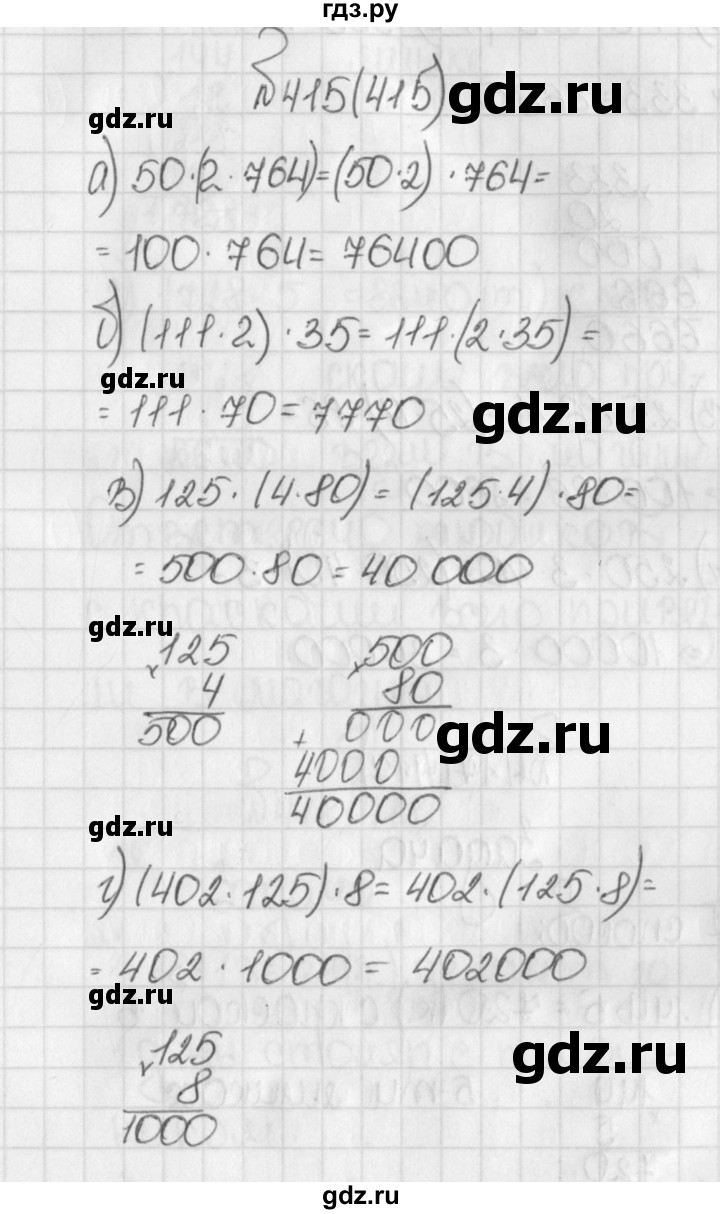 гдз.ру
№415(415)
gdz.ru
gdz.ru
а) 50·(2·764)=(50·2)·764=
=100·764=76400
б) (111·2)·35=111·(2·35)=
gdz.ru
=111·70=7770
gdz.ru
в) 125·(4·80)=(125·4)·80=
=500·80=40 000
gdz.ru
×125
4
500
×500
80
000
+
4000
40000
gdz.ru
gdz.ru
г) (402·125)·8=402·(125·8)=
=402·1000=402000
gdz.ru
×125
8
1000
gdz.ru
gdz.ru